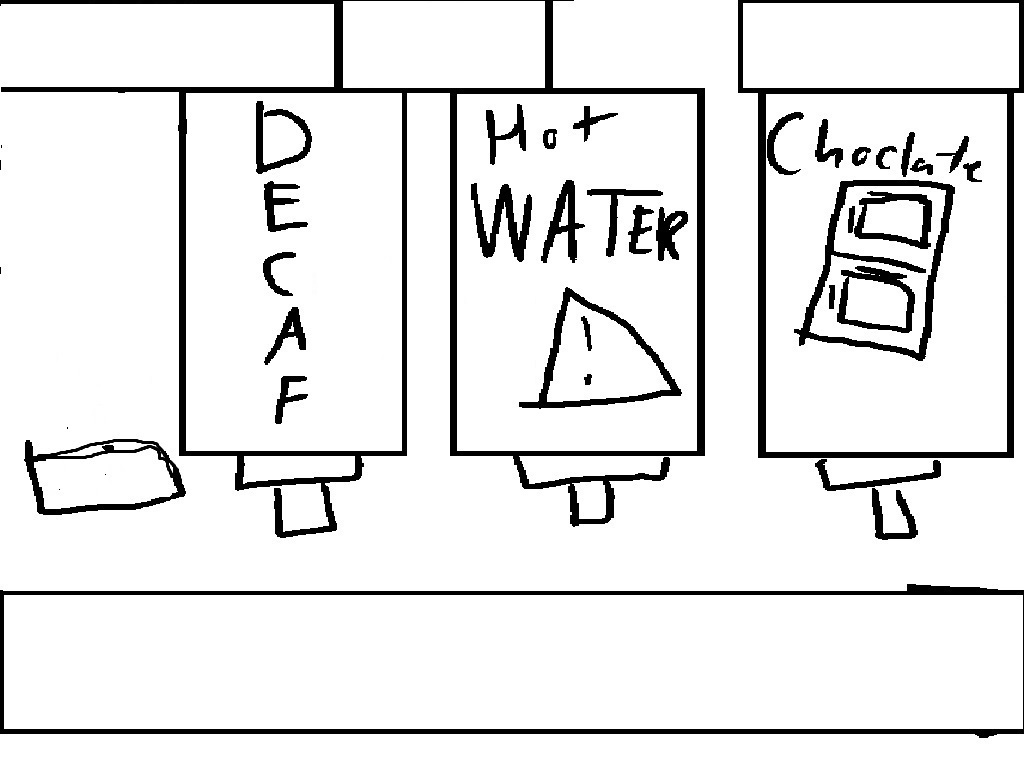 DECAF
Hot
WATER
!
Choclate